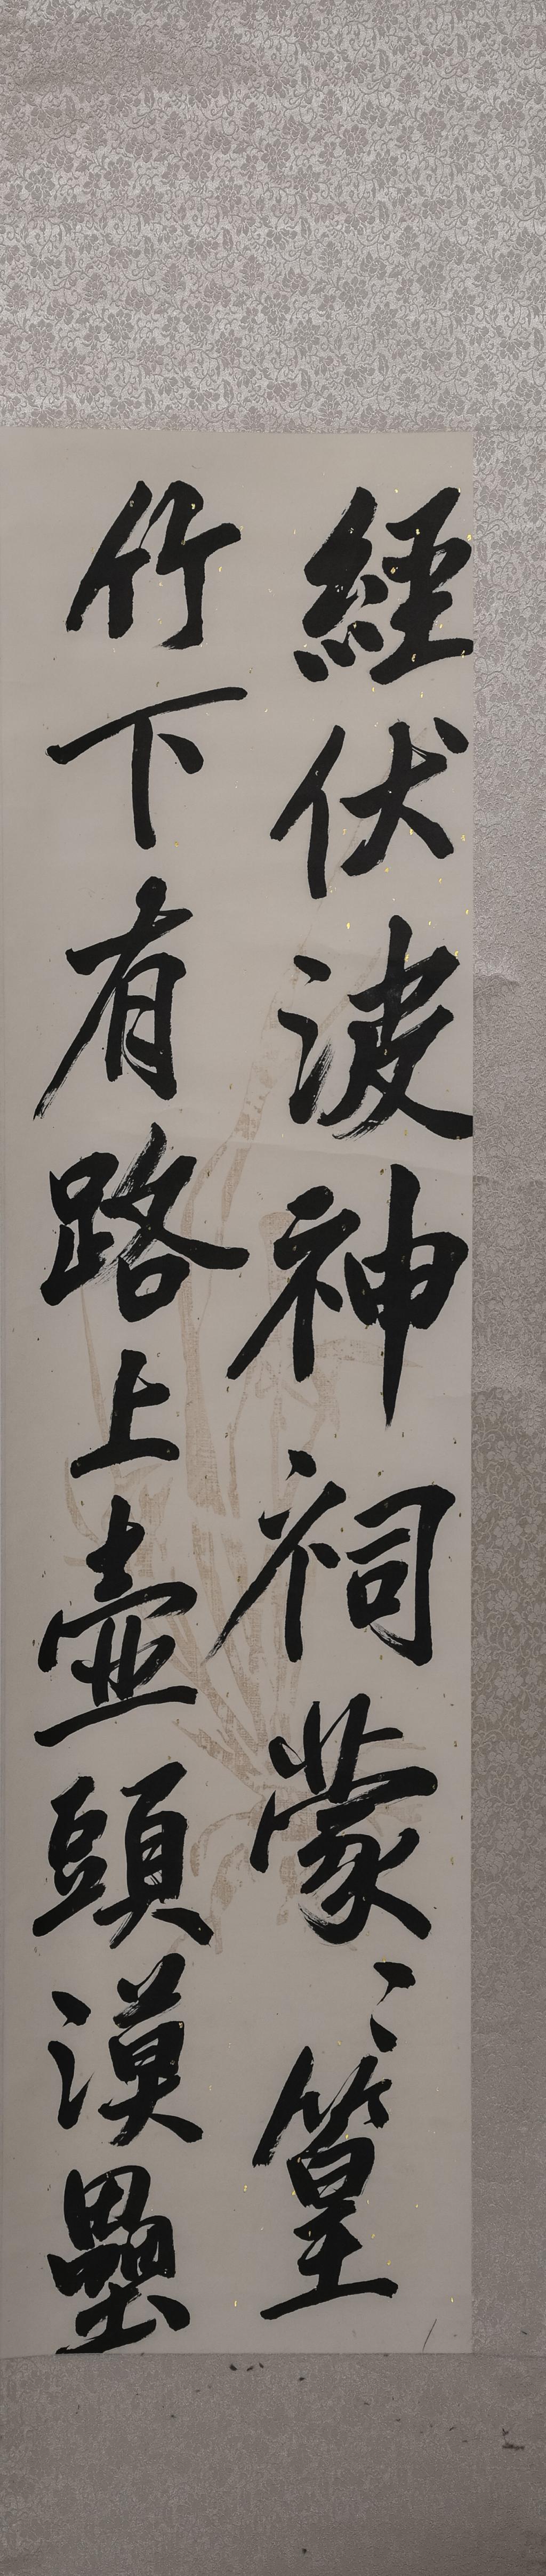 經伏波神祠蒙〻篁
竹下有路上壺頭漠壘